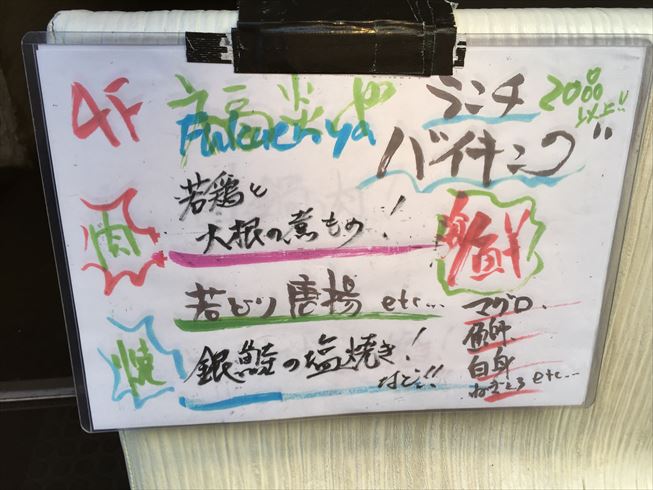 4F
ランチ
バイキング
肉
若鶏と
大根の煮もの!
若どり唐揚 etc...
焼
銀鮭の塩焼き!
など!!
鮮
マグロ
白身
ねぎとろ etc...